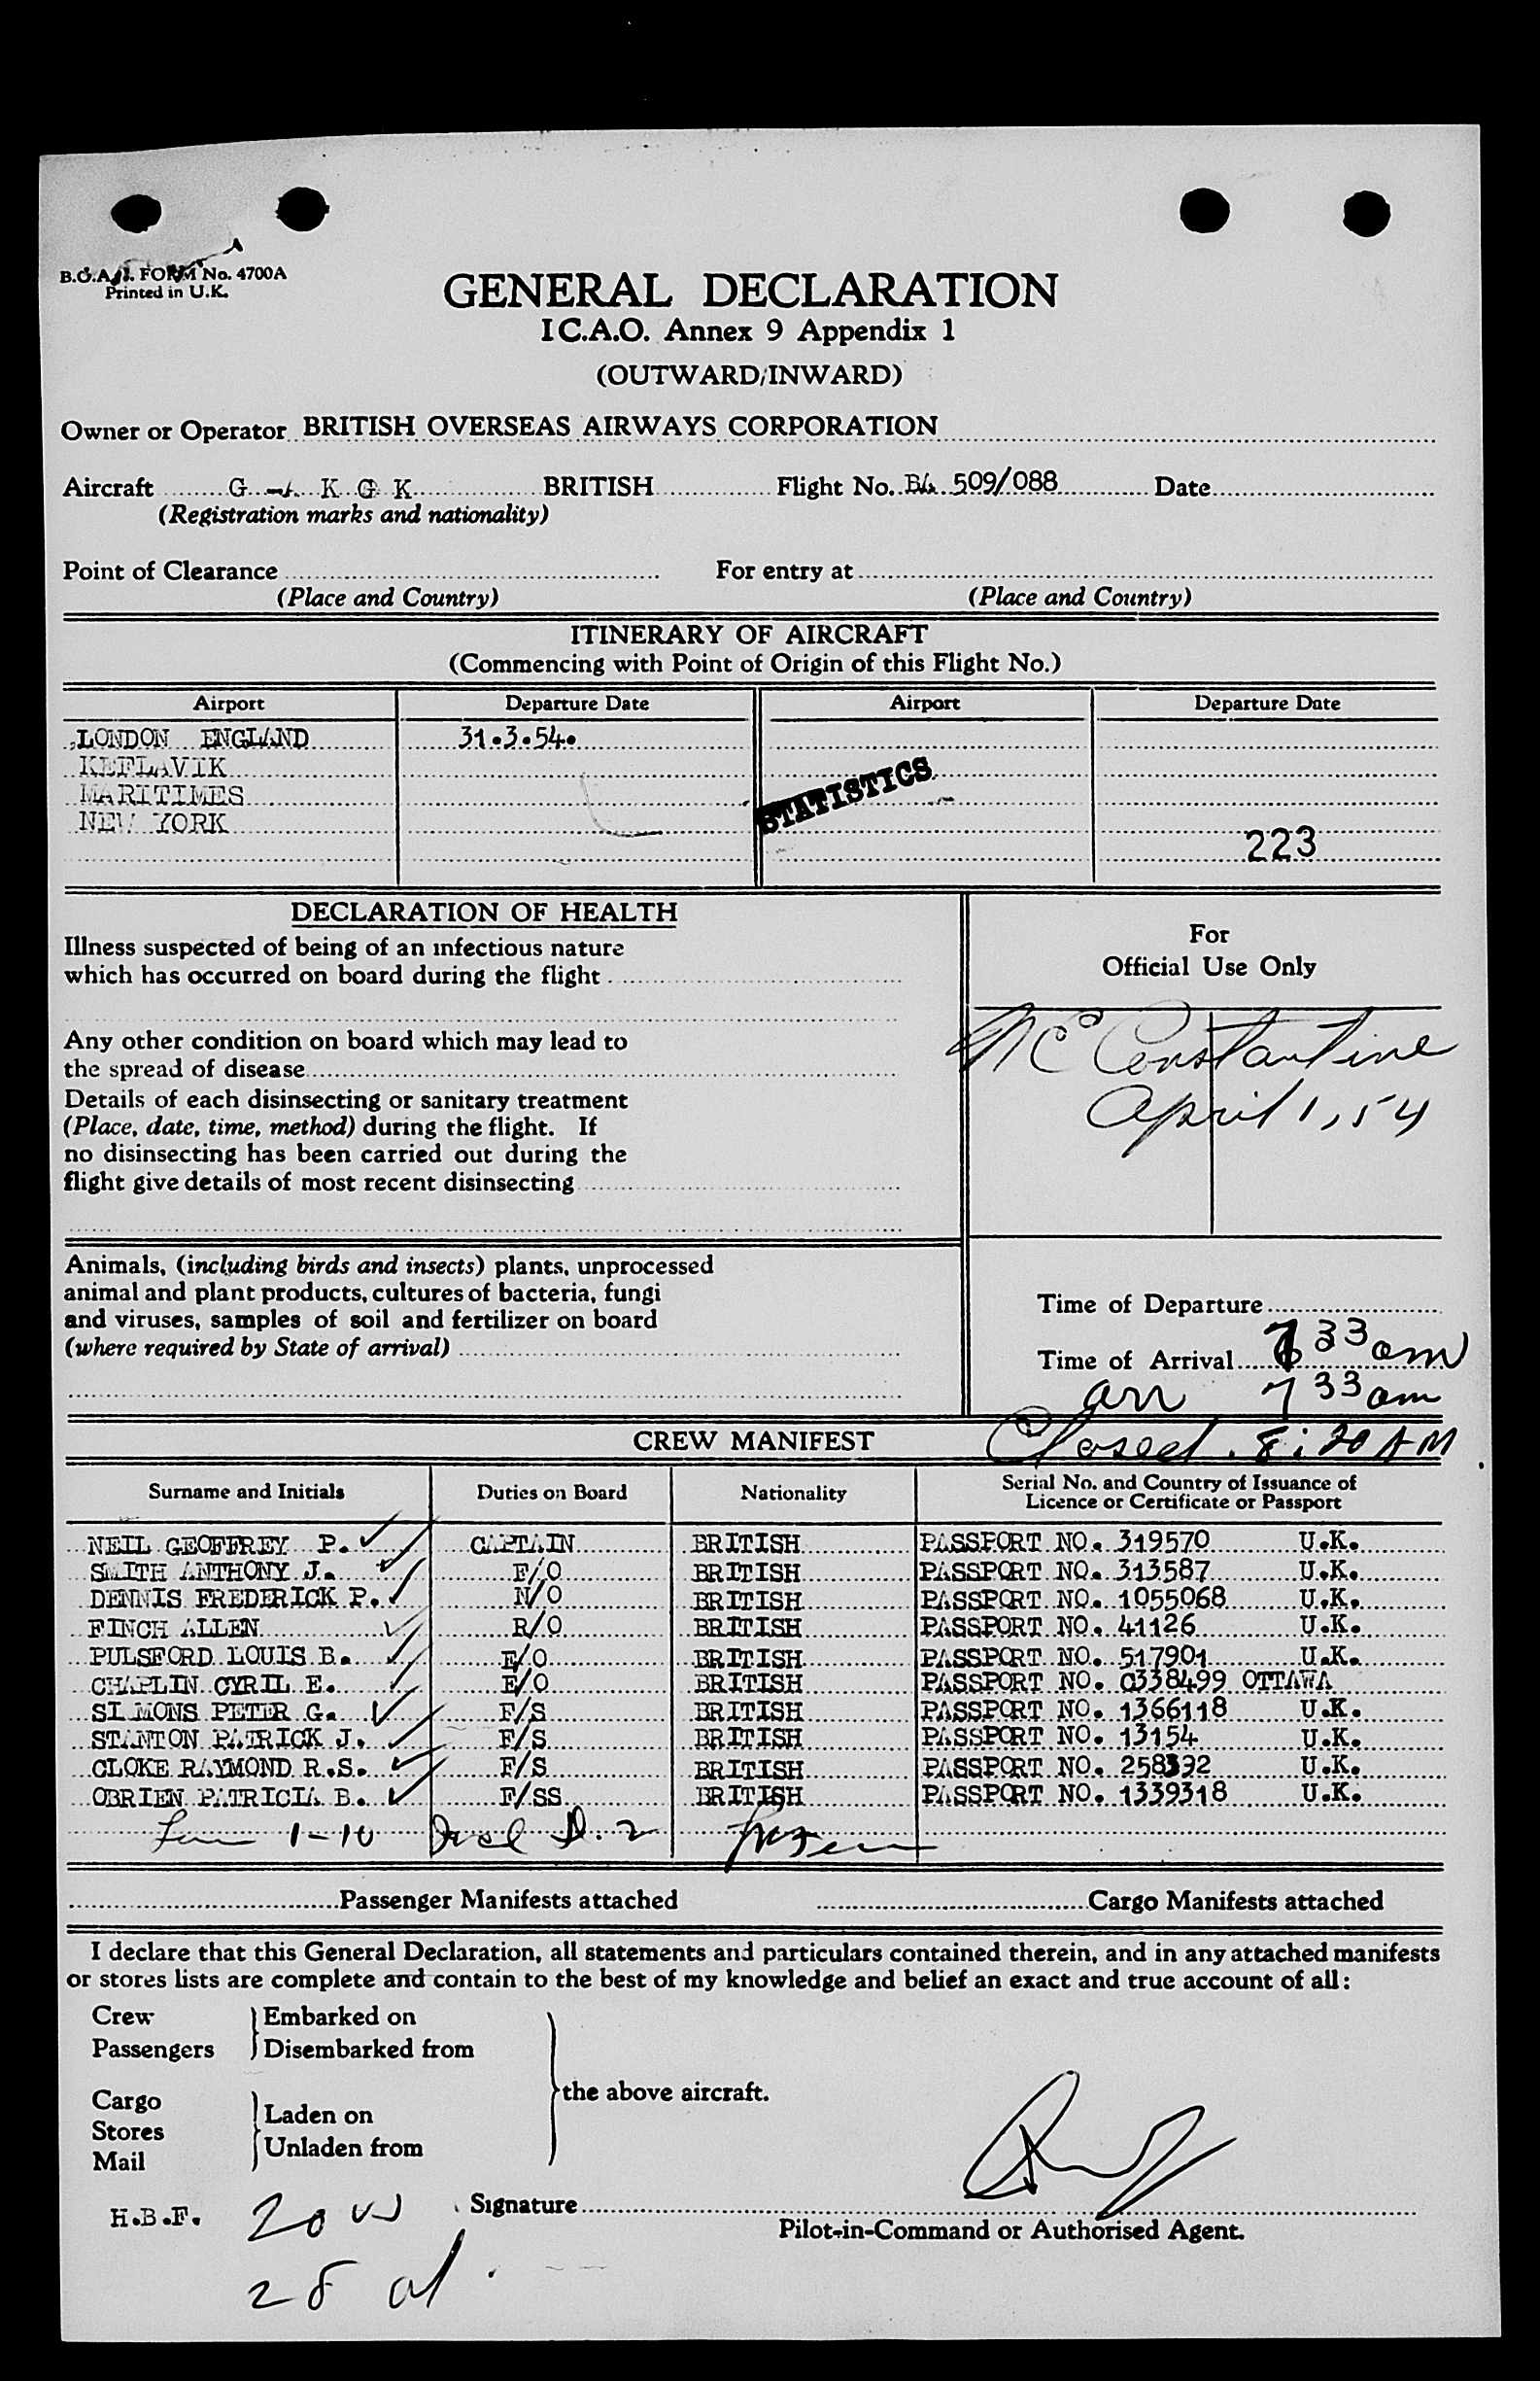 B.O.A.C. FORM No. 4700A
Printed in U.K.
GENERAL DECLARATION
I C.A.O. Annex 9 Appendix 1
(OUTWARD/INWARD)
Owner or Operator BRITISH OVERSEAS AIRWAYS CORPORATION
Aircraft G - A K G K BRITISH Flight No. BA 509/088 Date
(Registration marks and nationality)
Point of Clearance For entry at
(Place and Country) (Place and Country)
ITINERARY OF AIRCRAFT
(Commencing with Point of Origin of this Flight No.)
Airport Departure Date Airport Departure Date
LONDON ENGLAND 31.3.54.
KEFLAVIK
MARITIMES STATISTICS
NEW YORK
223
DECLARATION OF HEALTH
Illness suspected of being of an infectious nature
which has occurred on board during the flight
Any other condition on board which may lead to
the spread of disease
Details of each disinsecting or sanitary treatment
(Place, date, time, method) during the flight. If
no disinsecting has been carried out during the
flight give details of most recent disinsecting
For
Official Use Only
Constantine
April 1, 54
Animals, (including birds and insects) plants, unprocessed
animal and plant products, cultures of bacteria, fungi
and viruses, samples of soil and fertilizer on board
(where required by State of arrival)
Time of Departure
Time of Arrival 7 33 am
arr 7 33 am
CREW MANIFEST Closed. 8:20 AM
Surname and Initials Duties on Board Nationality Serial No. and Country of Issuance of
Licence or Certificate or Passport
NEIL GEOFFREY P. CAPTAIN BRITISH PASSPORT NO. 319570 U.K.
SMITH ANTHONY J. F/O BRITISH PASSPORT NO. 313587 U.K.
DENNIS FREDERICK P. N/O BRITISH PASSPORT NO. 1055068 U.K.
FINCH ALLEN R/O BRITISH PASSPORT NO. 41126 U.K.
PULSFORD LOUIS B. E/O BRITISH PASSPORT NO. 517901 U.K.
CHAPLIN CYRIL E. E/O BRITISH PASSPORT NO. 0338499 OTTAWA
SIMONS PETER G. F/S BRITISH PASSPORT NO. 1366118 U.K.
STANTON PATRICK J. F/S BRITISH PASSPORT NO. 13154 U.K.
CLOKE RAYMOND R.S. F/S BRITISH PASSPORT NO. 258392 U.K.
OBRIEN PATRICIA B. F/SS BRITISH PASSPORT NO. 1339318 U.K.
1-10
Passenger Manifests attached Cargo Manifests attached
I declare that this General Declaration, all statements and particulars contained therein, and in any attached manifests
or stores lists are complete and contain to the best of my knowledge and belief an exact and true account of all:
Crew Embarked on
Passengers Disembarked from
the above aircraft.
Cargo
Laden on
Stores
Unladen from
Mail
H.B.F. 20 Signature
Pilot-in-Command or Authorised Agent.
28